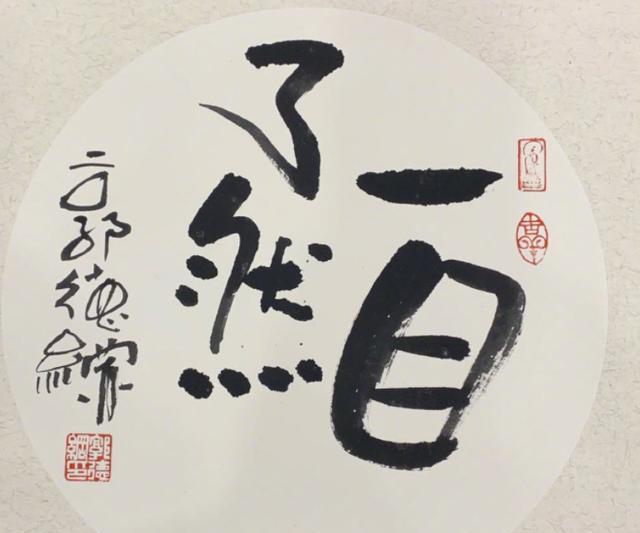 一目
了然
郭德綱
郭德
綱印